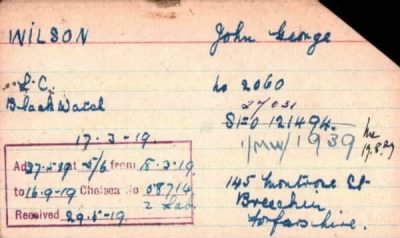 WILSON John George
L.C. No 2060
Black Watch 27031
S1=0 121494
17-3-19. 1/MW/1939
19.8.29
Ad 27-5-19 at 5/6 from 18-3-19
to 16-9-19 Chelsea No 08714
Received 29-5-19.
145 Montrose St
Brechin
Forfarshire.